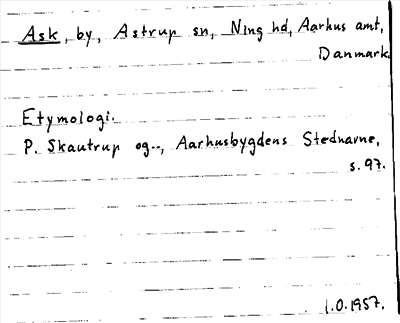 Ask, by, Astrup sn, Ning hd, Aarhus amt,
Danmark.
Etymologi.
P. Skautrup og.., Aarhusbygdens Stednavne,
s. 97.
I.O. 1957.